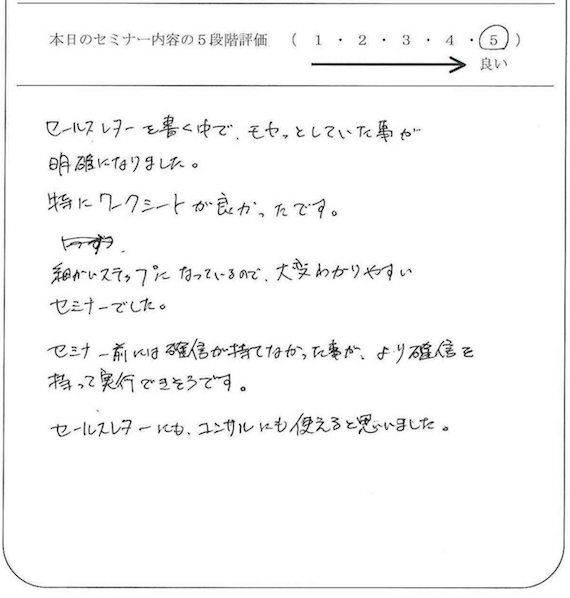 本日のセミナー内容の5段階評価 ( 1 ・ 2 ・ 3 ・ 4 ・ 5 )
良い
セールスレターを書く中で、モヤっとしていた事が
明確になりました。
特にワークシートが良かったです。
細かいステップになっているので、大変わかりやすい
セミナーでした。
セミナー前には確信が持てなかった事が、より確信を
持って実行できそうです。
セールスレターにも、コンサルにも使えると思いました。